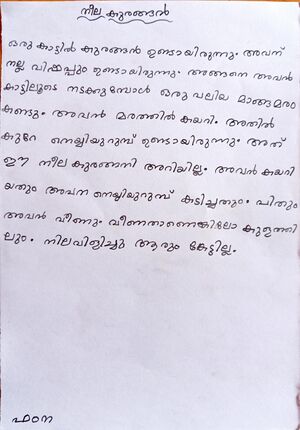 നീല കുരങ്ങൻ
ഒരു കാട്ടിൽ കുരങ്ങൻ ഉണ്ടായിരുന്നു. അവന്
നല്ല വിഷപ്പും ഉണ്ടായിരുന്നു. അങ്ങനെ അവൻ
കാട്ടിലൂടെ നടക്കുമ്പോൾ ഒരു പലിയ മാങ്ങമരം
കണ്ടു. അവൻ മരത്തിൽ കയറി. അതിൽ
കുറേ നെയ്യിയുറുമ്പ് ഉണ്ടായിരുന്നു. അത്
ഈ നീല കുരങ്ങനി അറിയില്ല. അവൻ കയറി
യതും അവന നെയ്യിയുറുമ്പ് കടിച്ചതും. പിതും
അവൻ വീണു. വീണതാണെങ്കിലോ കുളത്തി
ലും. നിലവിളിച്ചു ആരും കേട്ടില്ല.
ഫഠന